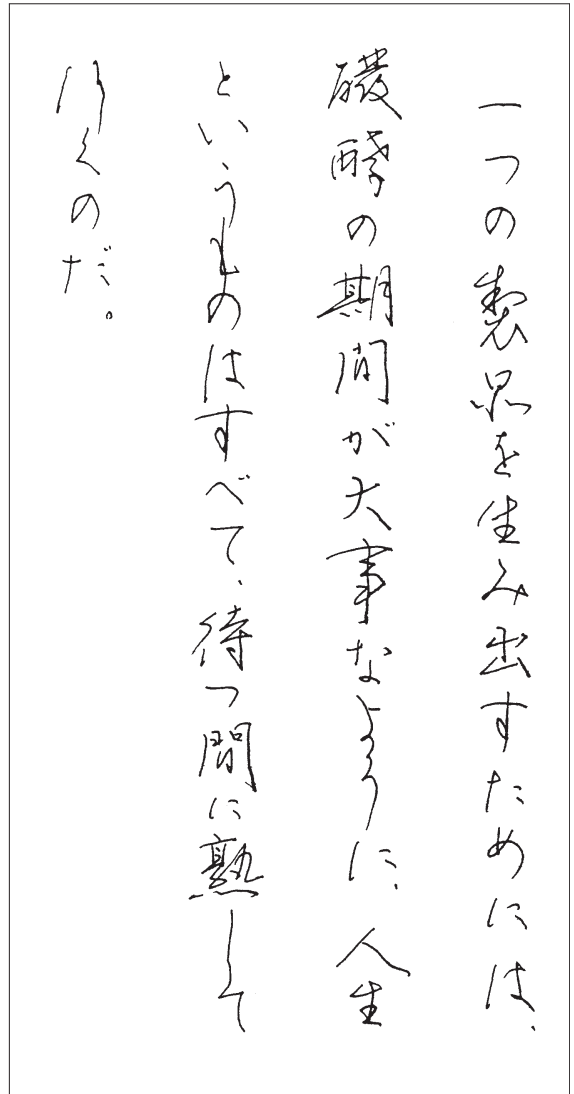 一つの製品を生み出すためには、
醗酵の期間が大事なように、人生
というものはすべて、待つ間に熟して
行くのだ。